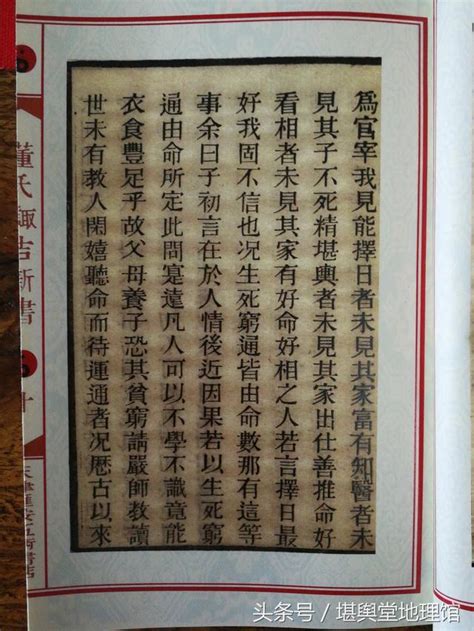 爲官宰我見能擇日者未見其家富有知醫者未
見其子不死精堪輿者未見其家出仕善推命好
看相者未見其家有好命好相之人若言擇日最
好我固不信也况生死窮通皆由命數那有這等
事余曰子初言在於人情後近因果若以生死窮
通由命所定此問寔遠凡人可以不學不識竟能
衣食豐足乎故父母養子恐其貧窮請嚴師教讀
世未有教人閑嬉聽命而待運通者况厯古以來
董氏諏吉新書
十
五術書店
头条号／堪舆堂地理馆